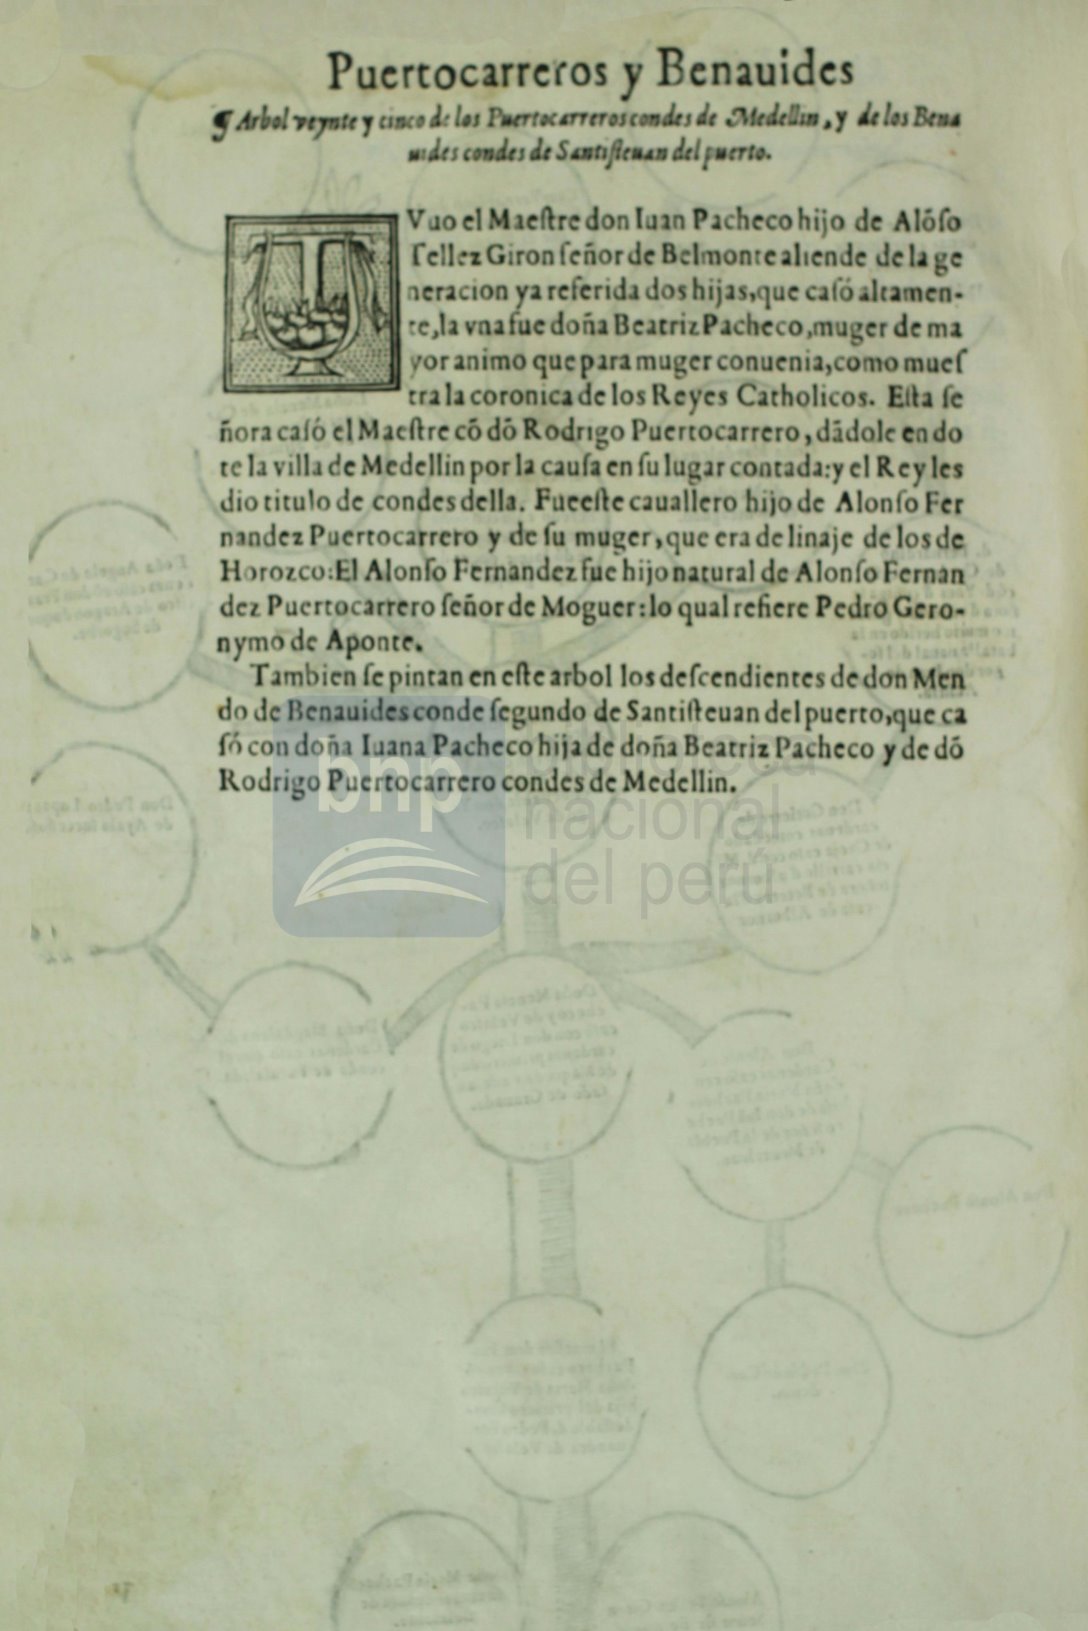 Puertocarreros y Benauides
¶ Arbol veynte y cinco de los Puertocarreros condes de Medellin, y de los Bena
uides condes de Santisteuan del puerto.
Vuo el Maestre don Iuan Pacheco hijo de Alõso
Tellez Giron señor de Belmonte aliende de la ge
neracion ya referida dos hijas, que casó altamen-
te, la vna fue doña Beatriz Pacheco, muger de ma
yor animo que para muger conuenia, como mues
tra la coronica de los Reyes Catholicos. Esta se
ñora casó el Maestre cõ dõ Rodrigo Puertocarrero, dãdole en do
te la villa de Medellin por la causa en su lugar contada: y el Rey les
dio titulo de condes della. Fue este cauallero hijo de Alonso Fer
nandez Puertocarrero y de su muger, que era de linaje de los de
Horozco: El Alonso Fernandez fue hijo natural de Alonso Fernan
dez Puertocarrero señor de Moguer: lo qual refiere Pedro Gero-
nymo de Aponte.
Tambien se pintan en este arbol los descendientes de don Men
do de Benauides conde segundo de Santisteuan del puerto, que ca
só con doña Iuana Pacheco hija de doña Beatriz Pacheco y de dõ
Rodrigo Puertocarrero condes de Medellin.
bnp biblioteca
nacional
del perú